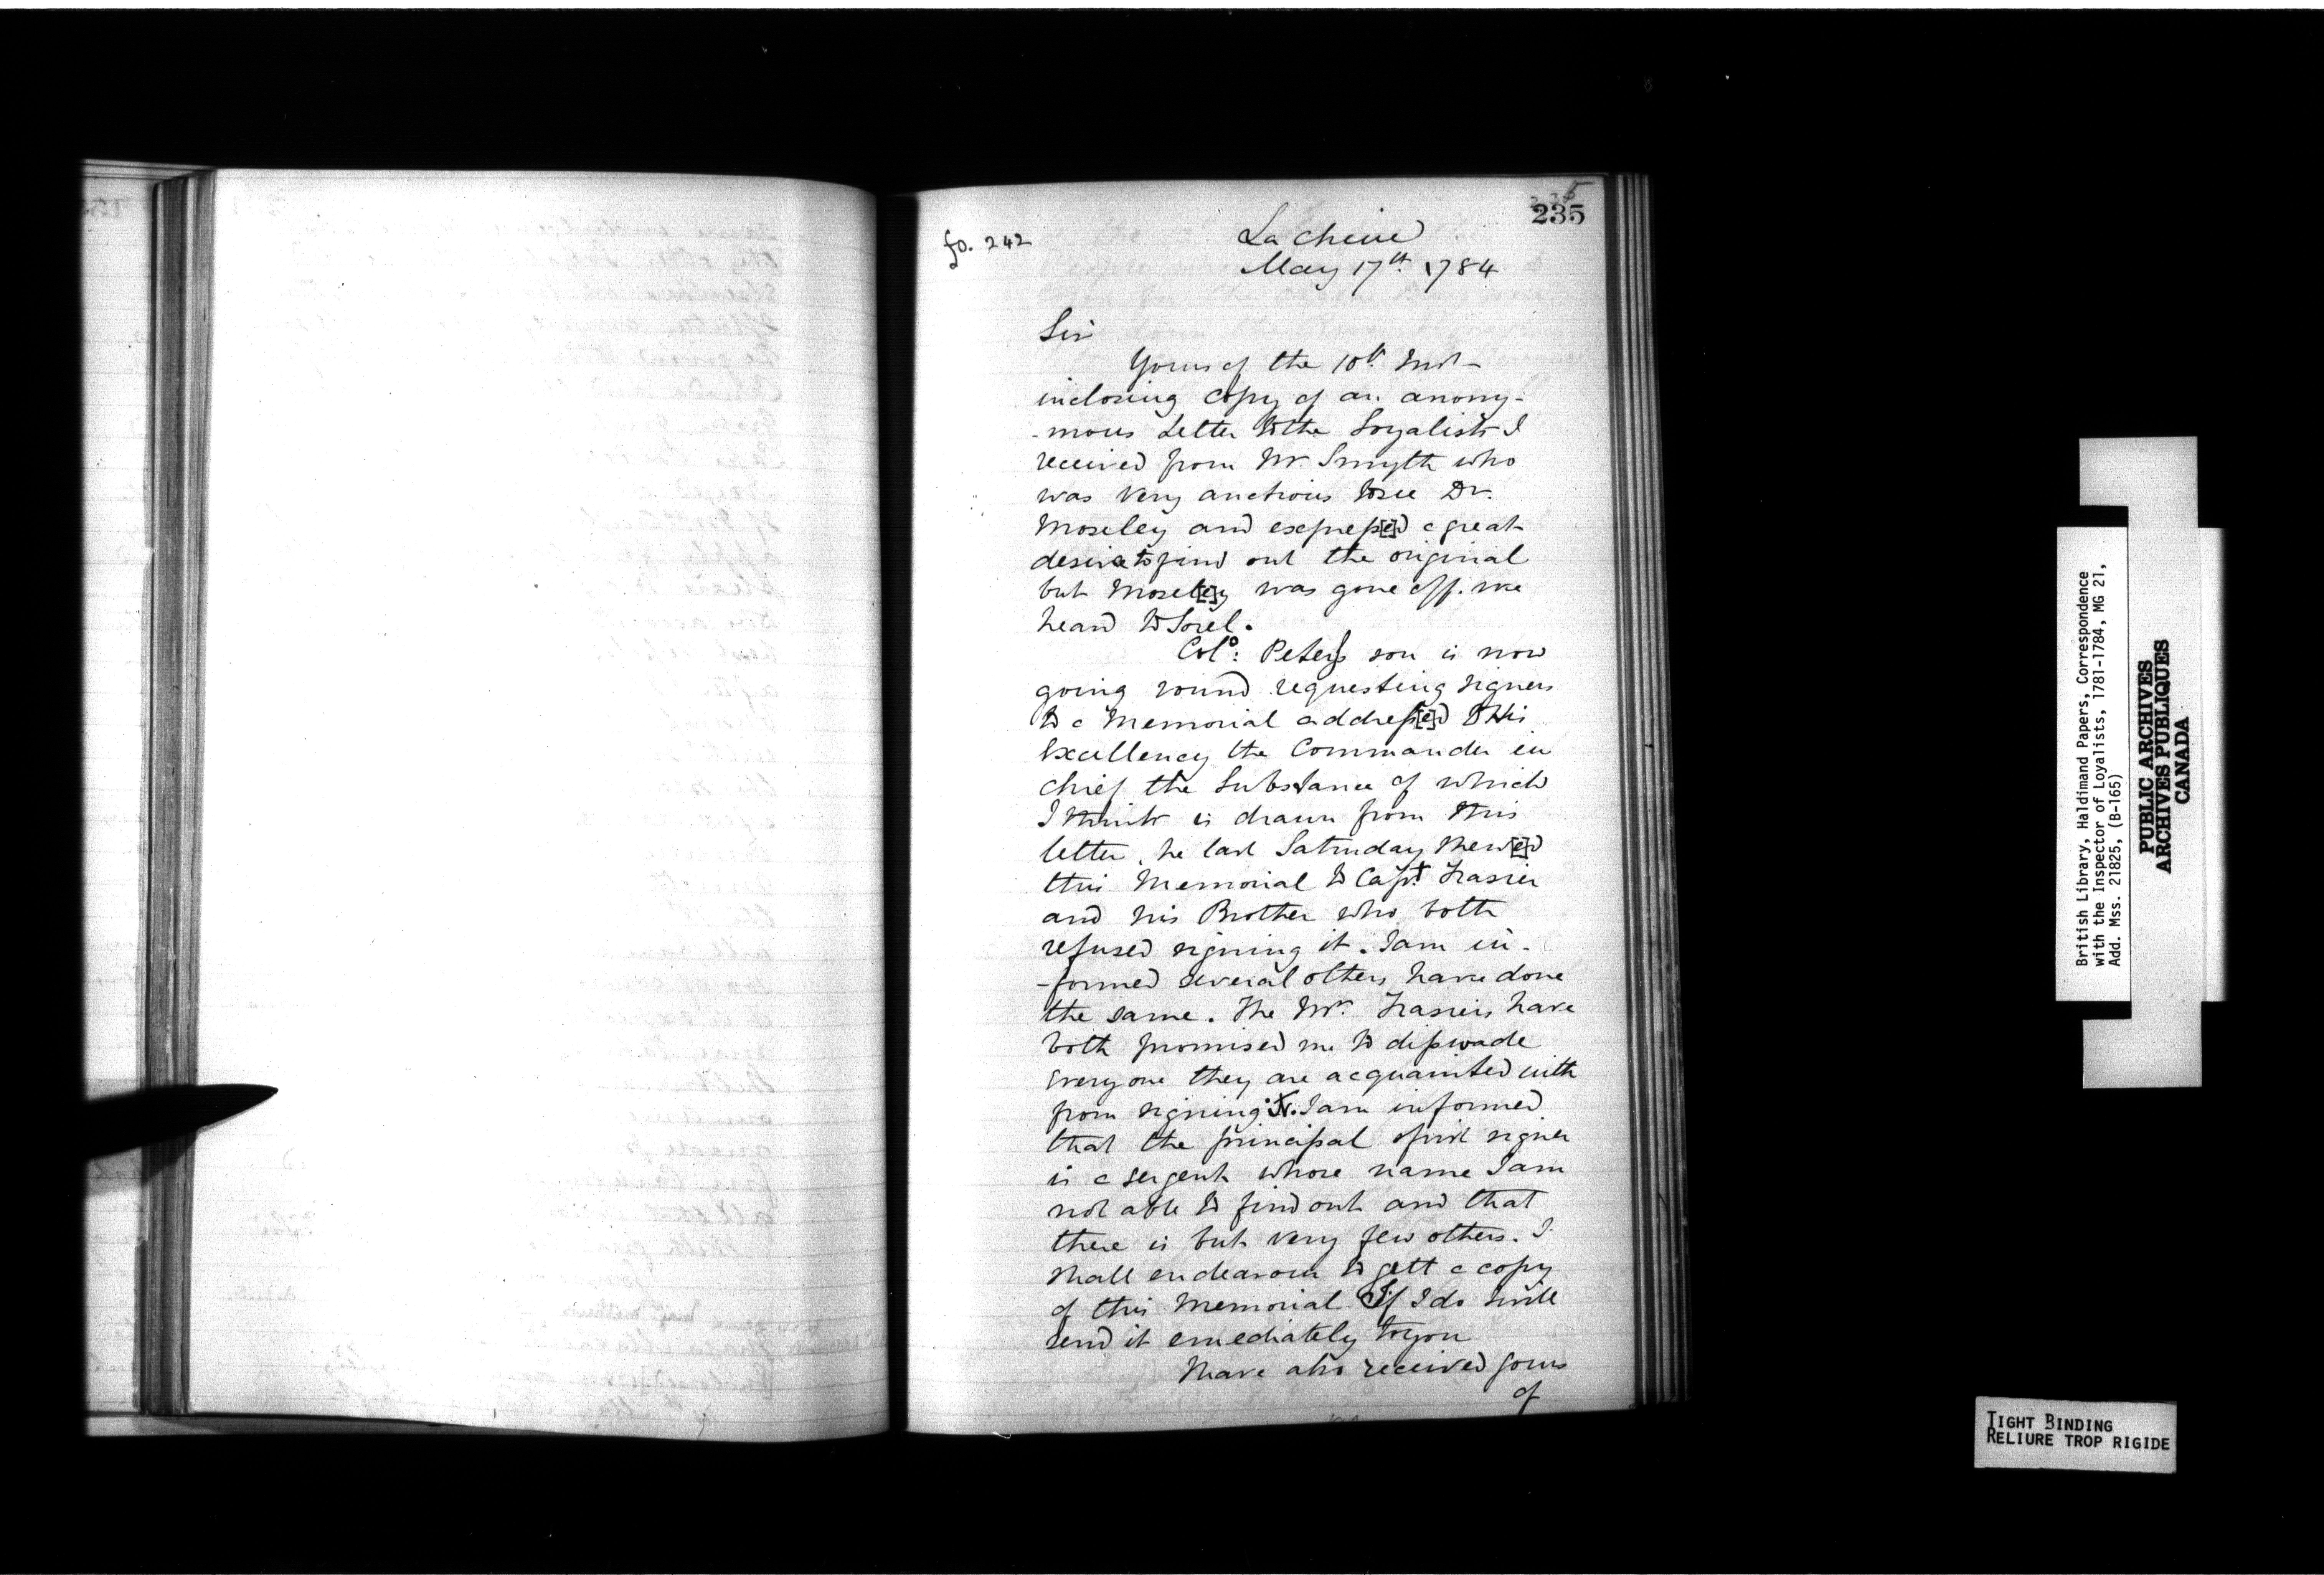 235
fo. 242
La chine
May 17th. 1784
Sir
Yours of the 10th. Inst-
inclosing copy of an anony-
-mous Letter to the Loyalists I
received from Mr. Smyth who
was very anctious to see Dr.
Moseley and express[e]d a great
desire to find out the original
but Mosel[e]y was gone off. we
heard to Sorel.
Colo: Peters son is now
going round requesting signers
to a Memorial address[e]d to His
Excellency the Commander in
chief the Substance of which
I think is drawn from this
letter, he last Saturday shew[e]d
this Memorial to Capt Frasier
and his Brother who both
refused signing it. I am in-
-formed several others have done
the same. The Mrs. Frasiers have
both promised me to disswade
every one they are acquainted with
from signing it. I am informed
that the principal signer
is a sergent whose name I am
not able to find out and that
there is but very few others. I
shall endeavour to gett a copy
of this Memorial If I do will
send it emediately to you
have also received yours
of
British Library, Haldimand Papers, Correspondence
with the Inspector of Loyalists, 1781-1784, MG 21,
Add. Mss. 21825, (B-165)
PUBLIC ARCHIVES
ARCHIVES PUBLIQUES
CANADA
TIGHT BINDING
RELIURE TROP RIGIDE